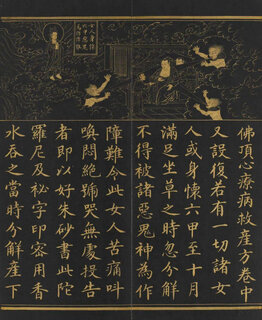 佛頂心療病救產方卷中
又設復若有一切諸女
人或身懷六甲至十月
滿足坐草之時忽分解
不得被諸惡鬼神為作
障難令此女人苦痛叫
喚悶絕號哭無處投告
者即以好朱砂書此陀
羅尼及秘字印密用香
水吞之當時分解產下